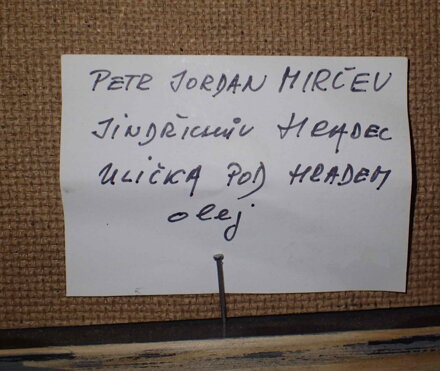 PETR JORDAN MIRČEV
JINDŘICHŮV HRADEC
ULIČKA POD HRADEM
olej